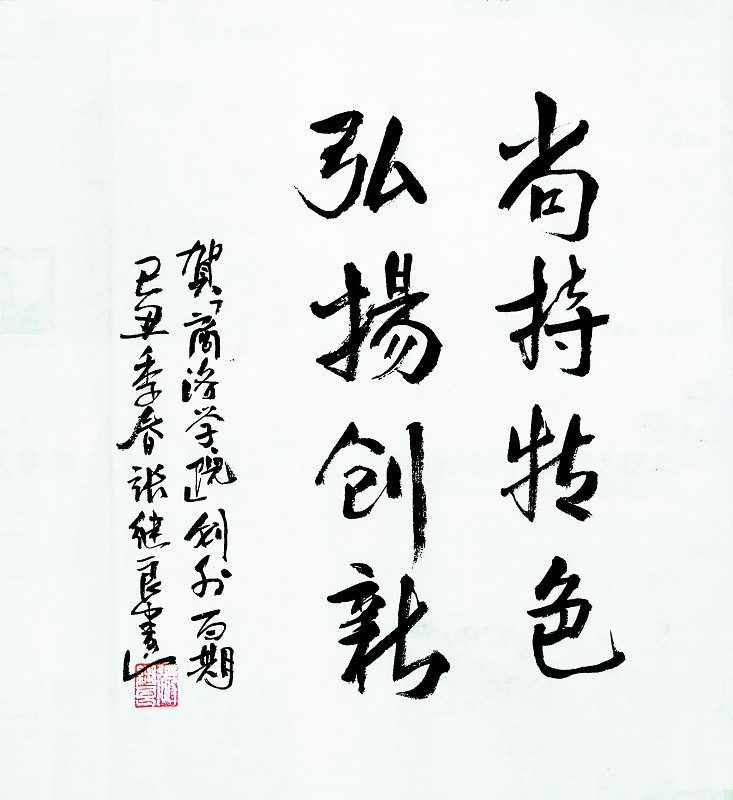 尚持特色
弘揚创新
贺「商洛学院」创刊百期
己丑季春张继良书